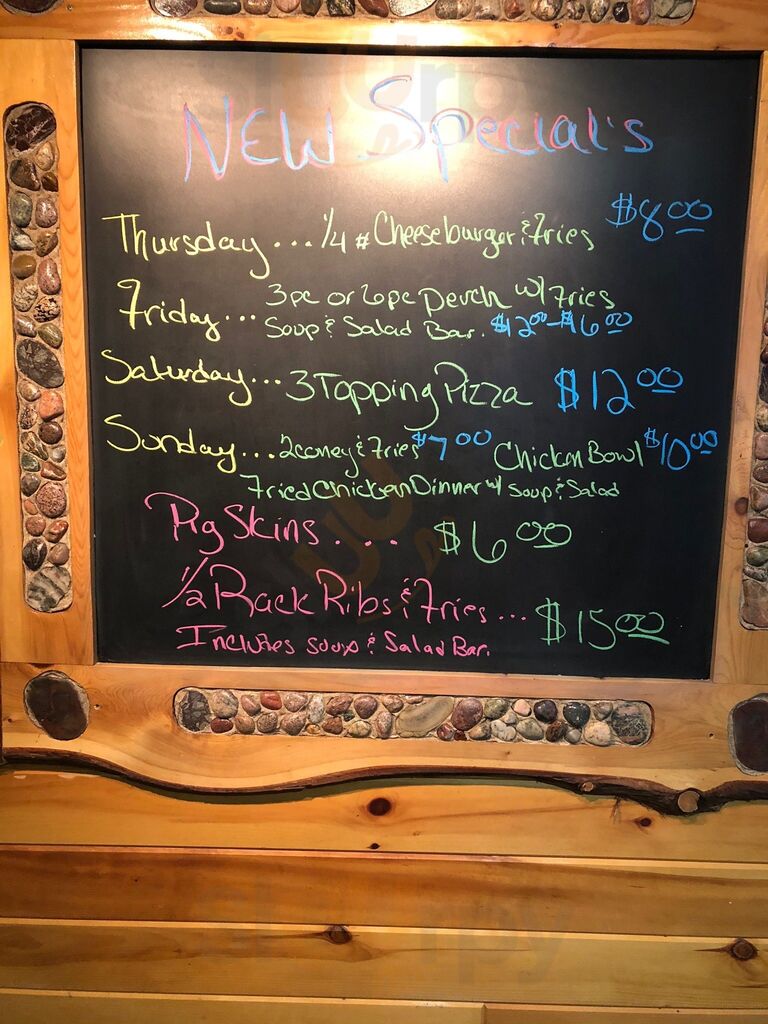 NEW Special's
Thursday...1/4 # Cheeseburger & Fries $8.00
Friday... 3pc or 6pc Perch w/ Fries
Soup & Salad Bar. $12.00-$16.00
Saturday...3 Topping Pizza $12.00
Sunday...2 coney & Fries $7.00 Chicken Bowl $10.00
Fried Chicken Dinner w/ soup & Salad
Pig Skins... $6.00
1/2 Rack Ribs & Fries... $15.00
Includes soup & Salad Bar.